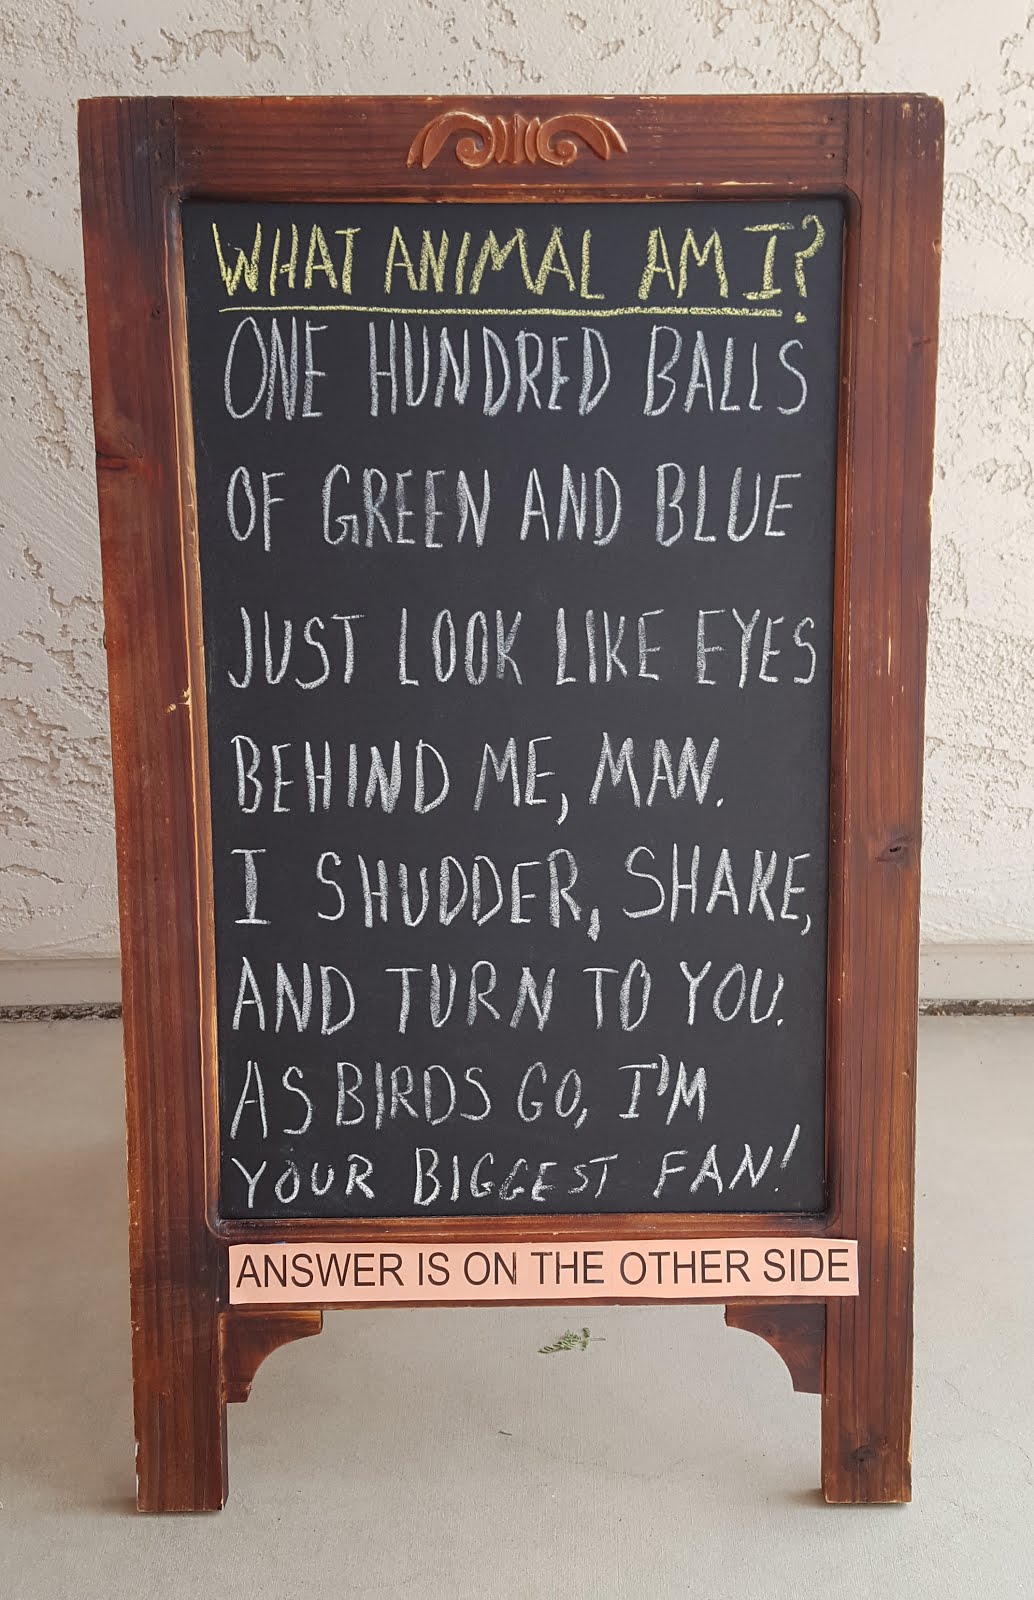 WHAT ANIMAL AM I?
ONE HUNDRED BALLS
OF GREEN AND BLUE
JUST LOOK LIKE EYES
BEHIND ME, MAN.
I SHUDDER, SHAKE,
AND TURN TO YOU.
AS BIRDS GO, I'M
YOUR BIGGEST FAN!
ANSWER IS ON THE OTHER SIDE